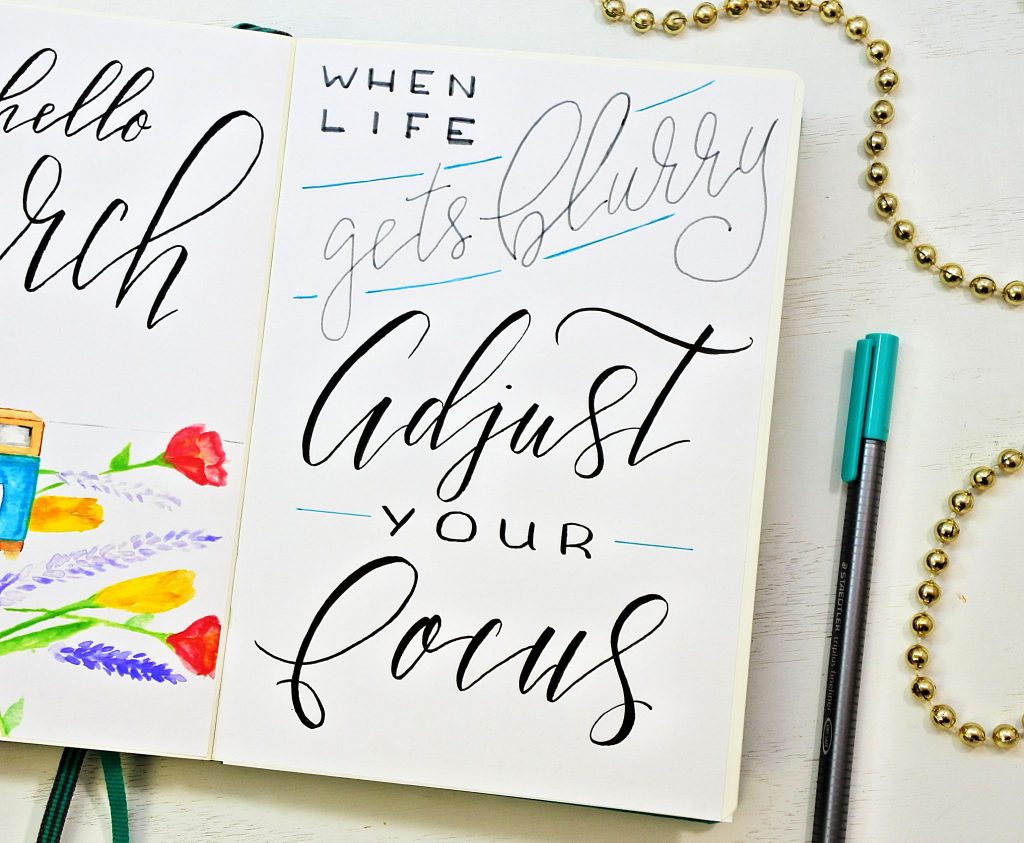 hello
rch
WHEN
LIFE
gets blurry
Adjust
YOUR
focus
STAEDTLER triplus fineliner